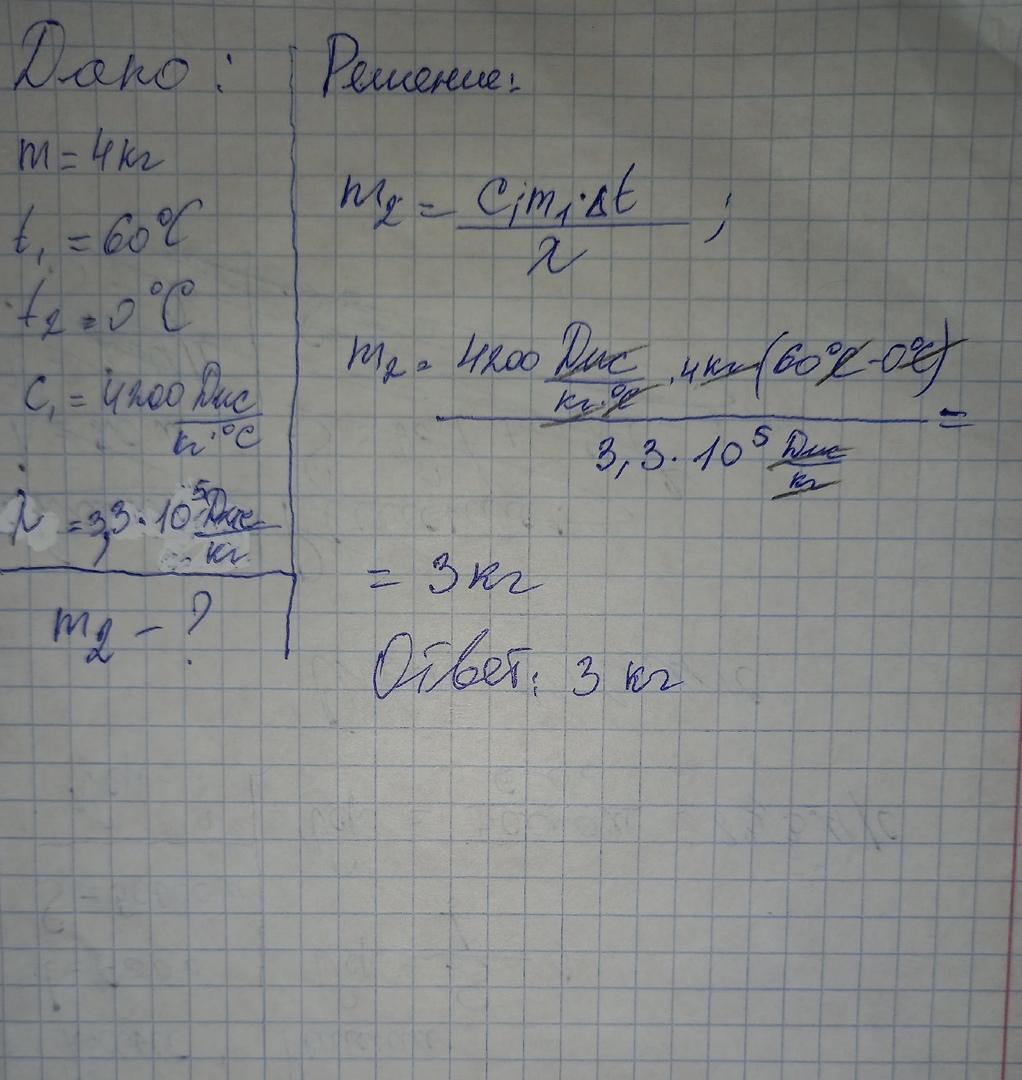 Дано:
m = 4 кг
t₁ = 60°C
t₂ = 0°C
C₁ = 4200 Дж/кг·°C
λ = 3,3·10⁵ Дж/кг
m₂ - ?
Решение:
m₂ = C₁m₁·Δt / λ ;
m₂ = 4200 Дж/кг·°C · 4кг (60°C - 0°C) / 3,3·10⁵ Дж/кг =
= 3 кг
Ответ: 3 кг